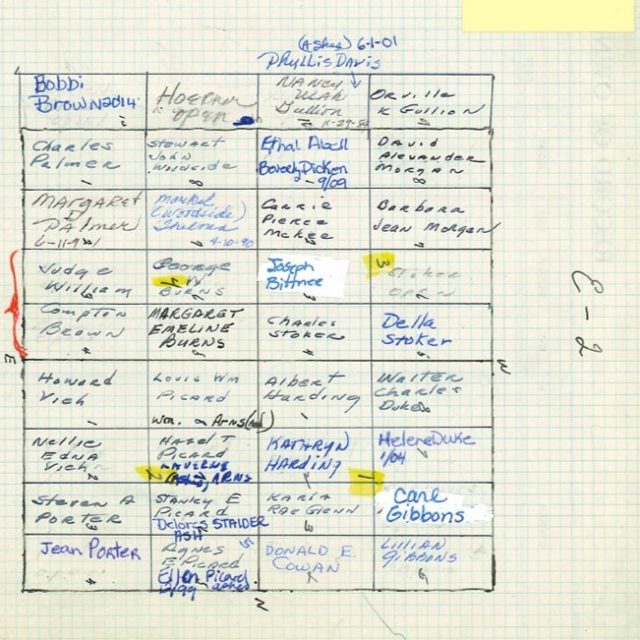 (Ashes) 6-1-01
Phyllis Davis
Bobbi
Brown 2014
Hoerner
OPEN
NANCY
Gullion
11-29-
Orville
K Gullion
Charles
Palmer
Stewart
John
Woodside
Ethal
Beverly Dicken
9/09
David
Alexander
Morgan
MARGARET
D
Palmer
6-11-91
(Woodside)
Thelma
4-10-90
Carrie
Pierce
McKee
Barbara
Jean Morgan
Judge
William
George
W
4
BURNS
Joseph
Bittner
3
Stoker
OPEN
Compton
Brown
MARGARET
EMELINE
BURNS
Charles
Stoker
Della
Stoker
E
W
E-2
Howard
Vich
Louis Wm
Picard
Wm. ARNS
Albert
Harding
Walter
Charles
Duke
Nellie
Edna
Vich
Hazel T
Picard
LAVERNE
ARNS
2
KATHRYN
HARDING
Helene Duke
1/04
1
Steven A
PORTER
STANLEY E
Picard
Delores STAIDER
ASH
Karla
Rae Glenn
Carl
Gibbons
Jean Porter
Agnes
E Picard
Ellen Picard
12/99 ashes
DONALD E.
COWAN
LILLIAN
GIBBONS